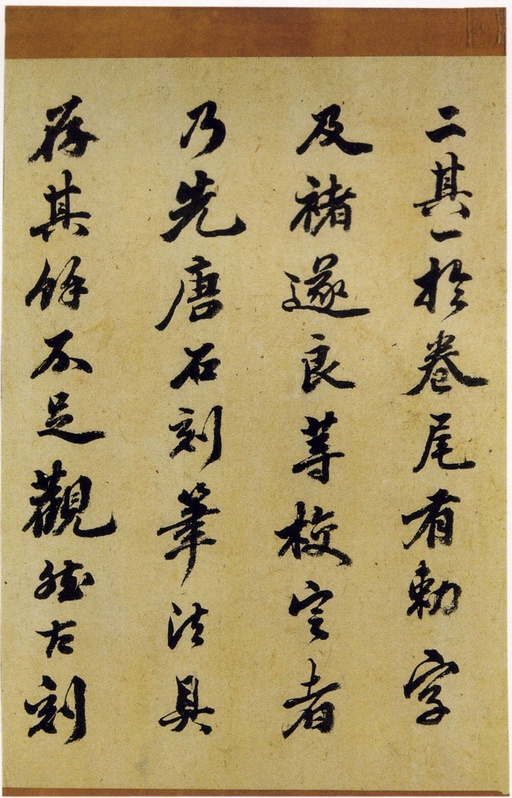 二其一於卷尾有勅字
及褚遂良等校定者
乃先唐石刻筆法具
存其餘不足觀然古刻